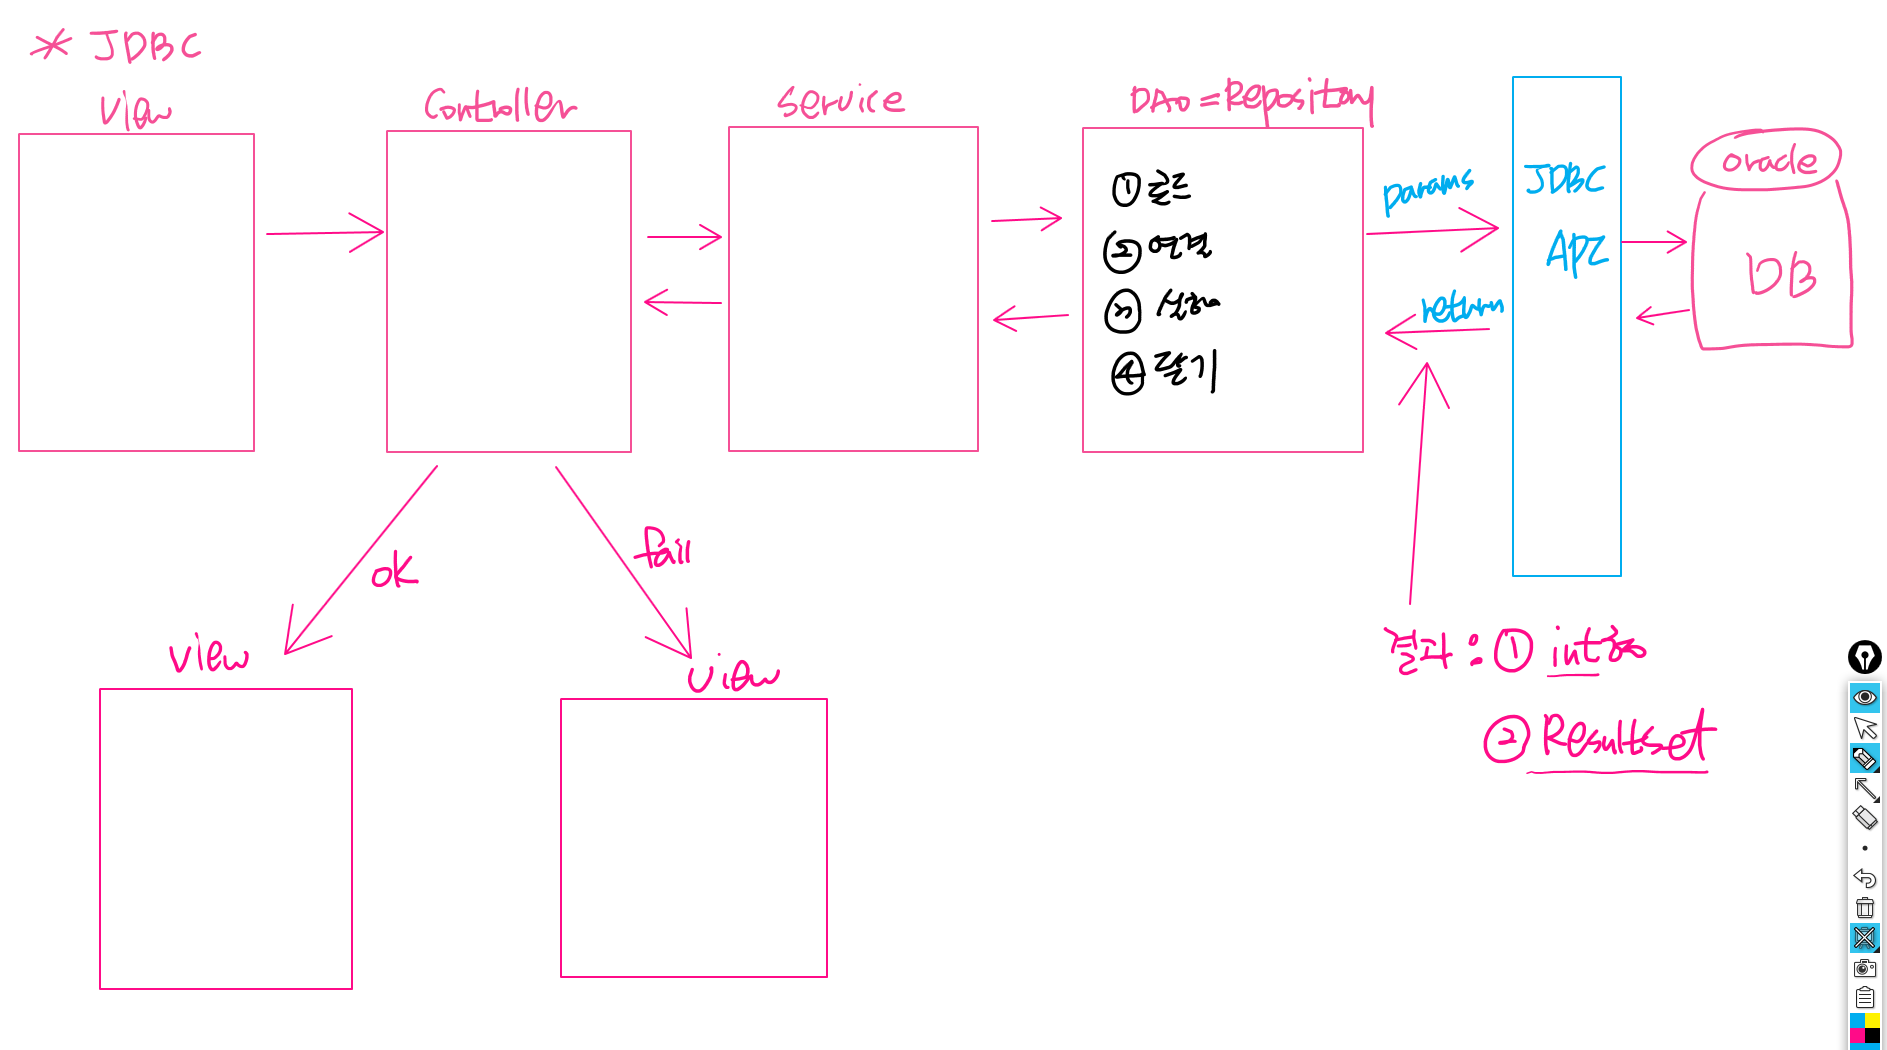 * JDBC
View
Controller
Service
DAO = Repository
① 로드
② 연결
③ 실행
④ 닫기
params
return
JDBC
API
oracle
DB
ok
fail
view
view
결과 : ① int형
② Resultset